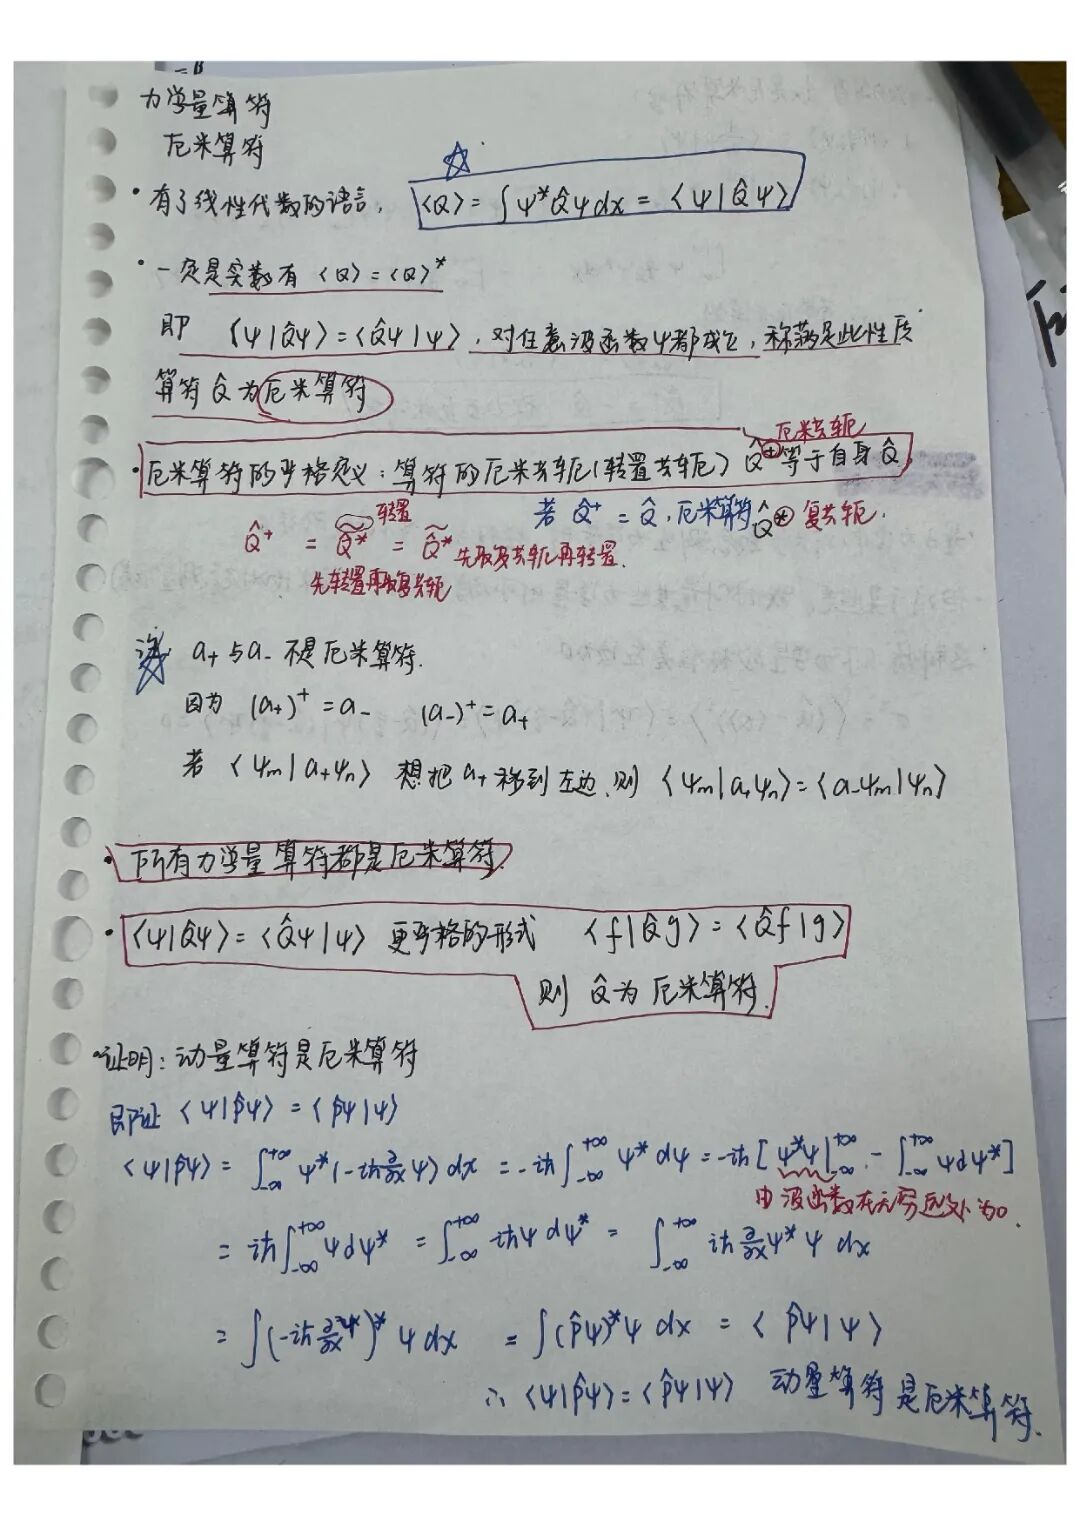 力学量算符
厄米算符
• 有了线性代数的语言, ⟨Q⟩ = ∫ψ*Q̂ψdx = ⟨ψ|Q̂ψ⟩
• 一定是实数有 ⟨Q⟩=⟨Q⟩*
即 ⟨ψ|Q̂ψ⟩=⟨Q̂ψ|ψ⟩, 对任意波函数ψ都成立, 称满足此性质
算符Q̂为厄米算符
厄米共轭
• 厄米算符的严格定义: 算符的厄米共轭(转置共轭) Q̂⁺等于自身Q̂
转置 若 Q̂⁺ = Q̂, 厄米算符 Q̂* 复共轭.
Q̂⁺ = \widetilde{Q̂*} = \widetilde{Q̂}* 先取复共轭再转置.
先转置再取复共轭
注 a₊与a₋ 不是厄米算符.
因为 (a₊)⁺ = a₋ (a₋)⁺ = a₊
若 ⟨ψm|a₊ψn⟩ 想把a₊移到左边, 则 ⟨ψm|a₊ψn⟩=⟨a₋ψm|ψn⟩
• 所有力学量算符都是厄米算符.
• ⟨ψ|Q̂ψ⟩=⟨Q̂ψ|ψ⟩ 更严格的形式 ⟨f|Q̂g⟩=⟨Q̂f|g⟩
则 Q̂为厄米算符.
• 证明: 动量算符是厄米算符
即证 ⟨ψ|p̂ψ⟩ = ⟨p̂ψ|ψ⟩
⟨ψ|p̂ψ⟩ = ∫_{-∞}^{+∞} ψ*(-iħ ∂/∂x ψ) dx = -iħ∫_{-∞}^{+∞} ψ* dψ = -iħ[ψ*ψ|_{-∞}^{+∞} - ∫_{-∞}^{+∞} ψdψ*]
由波函数在无穷远处为0.
= iħ∫_{-∞}^{+∞} ψdψ* = ∫_{-∞}^{+∞} iħψdψ* = ∫_{-∞}^{+∞} iħ ∂/∂x ψ* ψ dx
= ∫(-iħ ∂/∂x ψ)* ψ dx = ∫(p̂ψ)*ψ dx = ⟨p̂ψ|ψ⟩
∴ ⟨ψ|p̂ψ⟩=⟨p̂ψ|ψ⟩ 动量算符是厄米算符.